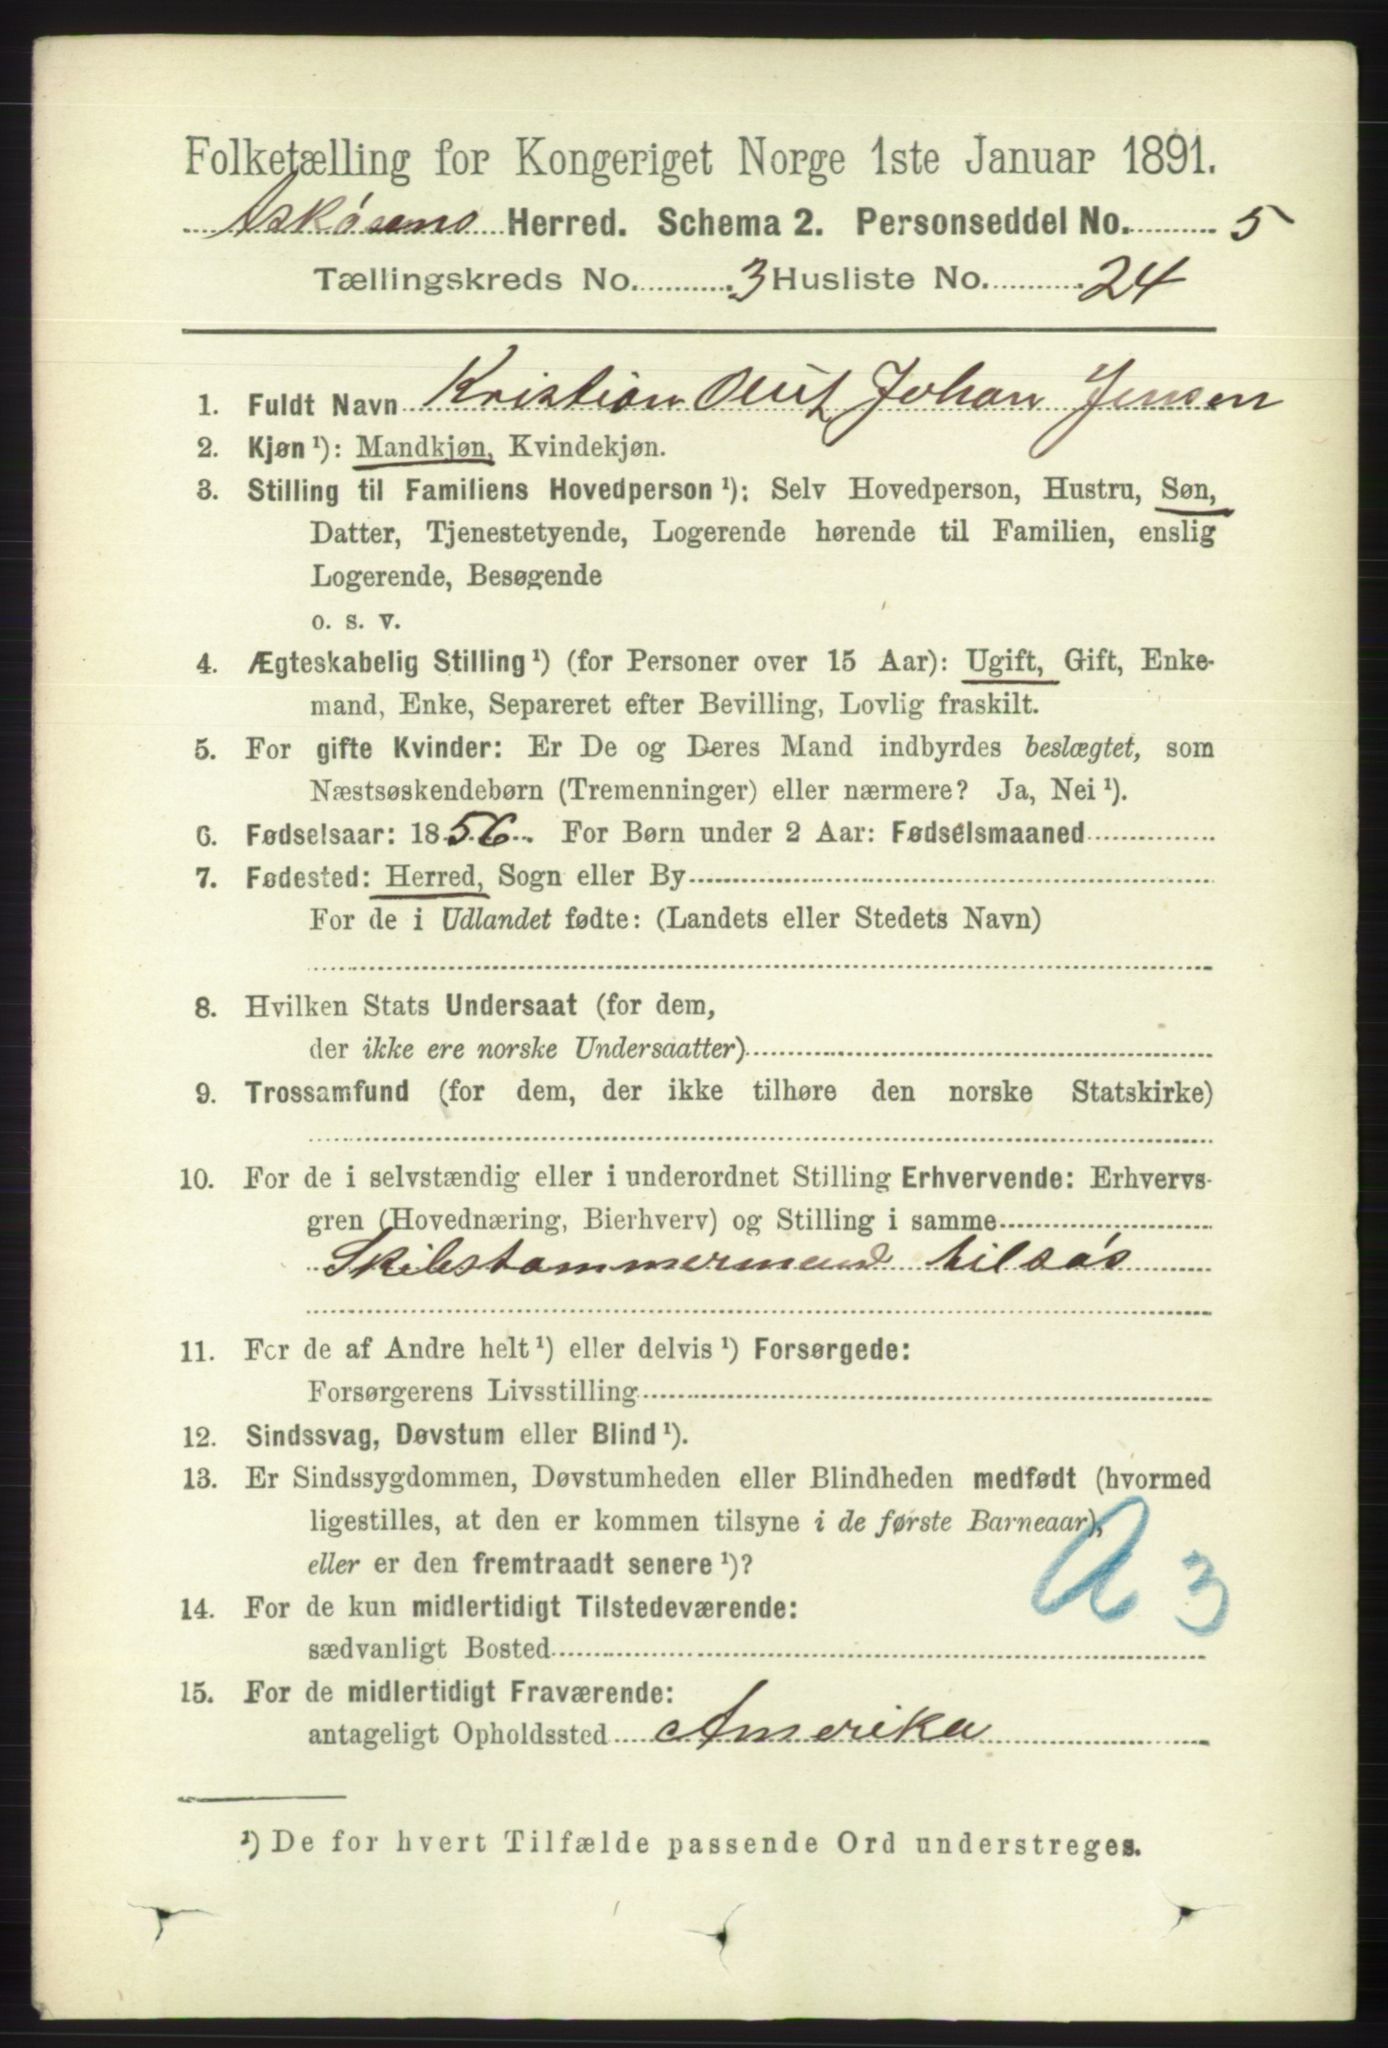 Folketælling for Kongeriget Norge 1ste Januar 1891.
Askøens Herred. Schema 2. Personseddel No. 5
Tællingskreds No. 3 Husliste No. 24
1. Fuldt Navn Kristian Johan Jensen
2. Kjøn¹): Mandkjøn, Kvindekjøn.
3. Stilling til Familiens Hovedperson¹): Selv Hovedperson, Hustru, Søn,
Datter, Tjenestetyende, Logerende hørende til Familien, enslig
Logerende, Besøgende
o. s. v.
4. Ægteskabelig Stilling¹) (for Personer over 15 Aar): Ugift, Gift, Enke-
mand, Enke, Separeret efter Bevilling, Lovlig fraskilt.
5. For gifte Kvinder: Er De og Deres Mand indbyrdes beslægtet, som
Næstsøskendebørn (Tremenninger) eller nærmere? Ja, Nei¹).
6. Fødselsaar: 1856. For Børn under 2 Aar: Fødselsmaaned
7. Fødested: Herred, Sogn eller By
For de i Udlandet fødte: (Landets eller Stedets Navn)
8. Hvilken Stats Undersaat (for dem,
der ikke ere norske Undersaatter)
9. Trossamfund (for dem, der ikke tilhøre den norske Statskirke)
10. For de i selvstændig eller i underordnet Stilling Erhvervende: Erhvervs-
gren (Hovednæring, Bierhverv) og Stilling i samme
Skibstømmermand tilsøs
11. For de af Andre helt¹) eller delvis¹) Forsørgede:
Forsørgerens Livsstilling
12. Sindssvag, Døvstum eller Blind¹).
13. Er Sindssygdommen, Døvstumheden eller Blindheden medfødt (hvormed
ligestilles, at den er kommen tilsyne i de første Barneaar),
eller er den fremtraadt senere¹)?
A 3
14. For de kun midlertidigt Tilstedeværende:
sædvanligt Bosted
15. For de midlertidigt Fraværende:
antageligt Opholdssted Amerika
¹) De for hvert Tilfælde passende Ord understreges.